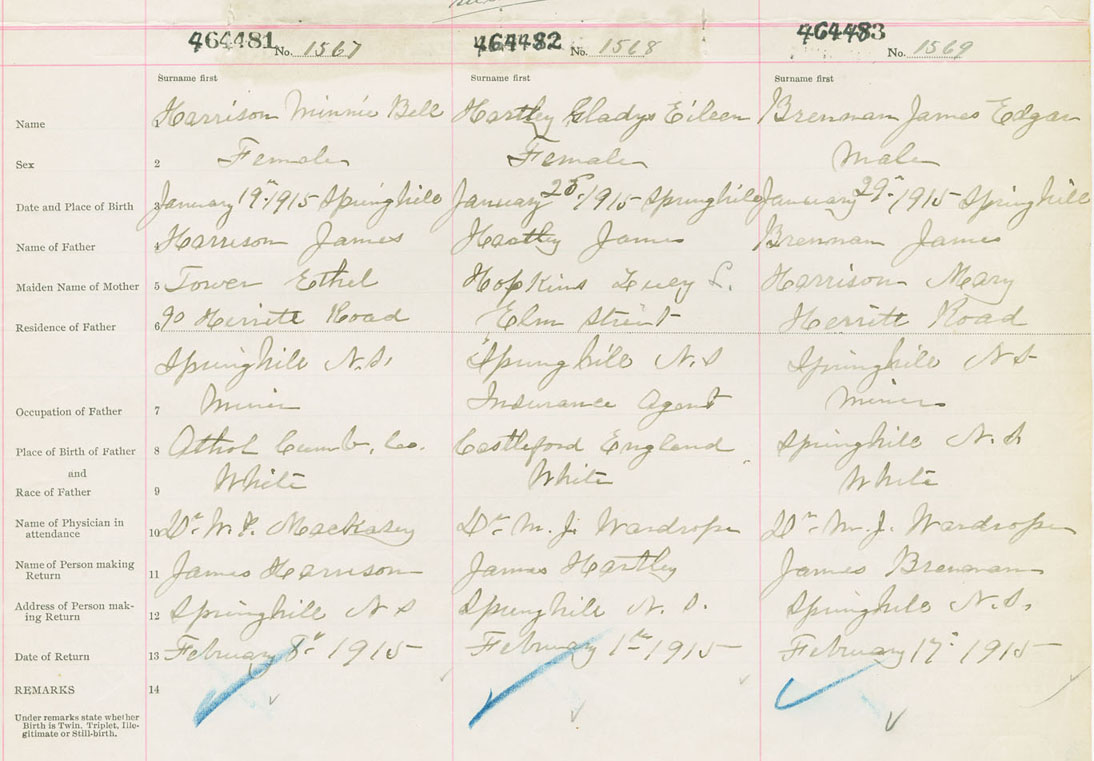 464481 No. 1567 464482 No. 1568 464483 No. 1569
Surname first Surname first Surname first
Name 1 Harrison Minnie Bell Hartley Gladys Eileen Brennan James Edgar
Sex 2 Female Female Male
Date and Place of Birth 3 January 19th 1915 Springhill January 1915 Springhill January 29th 1915 Springhill
Name of Father 4 Harrison James Hartley James Brennan James
Maiden Name of Mother 5 Tower Ethel Hopkins Lucy S. Harrison Mary
Residence of Father 6 90 Herrett Road Elm Street Herrett Road
Springhill N.S. Springhill N.S Springhill N S
Occupation of Father 7 Miner Insurance Agent Miner
Place of Birth of Father 8 Athol Cumb. Co. Castleford England Springhill N.S.
and White White White
Race of Father 9
Name of Physician in
attendance 10 Dr. W. F. MacKasey Dr. M. J. Wardrope Dr. M. J. Wardrope
Name of Person making
Return 11 James Harrison James Hartley James Brennan
Address of Person mak-
ing Return 12 Springhill N S Springhill N. S. Springhill N.S.
Date of Return 13 February 8th 1915 February 1st 1915 February 17th 1915
REMARKS 14
Under remarks state whether
Birth is Twin, Triplet, Ille-
gitimate or Still-birth.